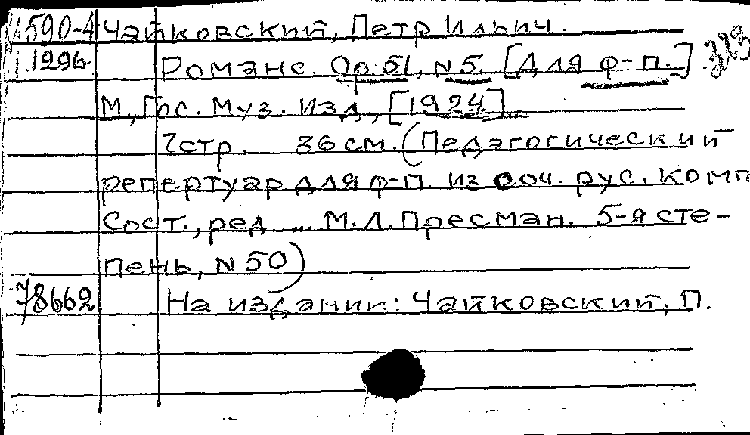 590-4 Чайковский, Петр Ильич.
1296 Романс. Op. 51, N 5. [Для ф-п.]
М., Гос. Муз. Изд., [1924]
7 стр. 36 см. (Педагогический
репертуар для ф-п. из соч. рус. комп
Сост., ред ... М.Л. Пресман. 5-я сте-
пень, N 50)
78662 На издании: Чайковский, П.